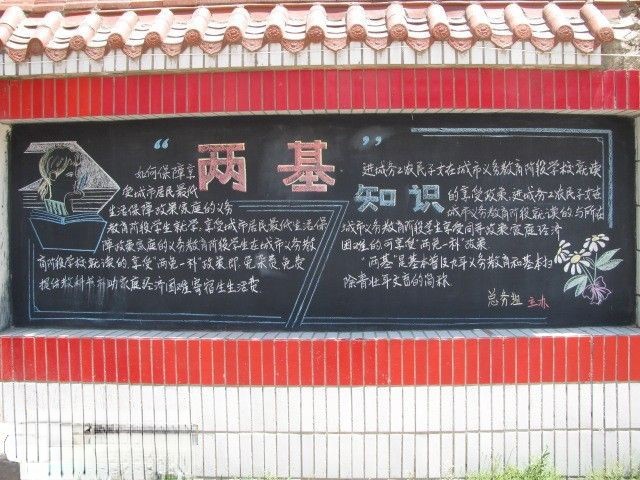 “两基”
知识
如何保障享
受城市居民最低
生活保障政策家庭的义务
教育阶段学生就学,享受城市居民最低生活保
障政策家庭的义务教育阶段学生在城市义务教
育阶段学校就读的,享受“两免一补”政策即:免杂费、免费
提供教科书补助家庭经济困难寄宿生生活费
进城务工农民子女在城市义务教育阶段学校就读
的享受政策:进城务工农民子女在
城市义务教育阶段就读的与所在
城市义务教育阶段学生享受同等政策家庭经济
困难的可享受“两免一补”政策
“两基”是基本普及九年义务教育和基本扫
除青壮年文盲的简称
总务处 主办